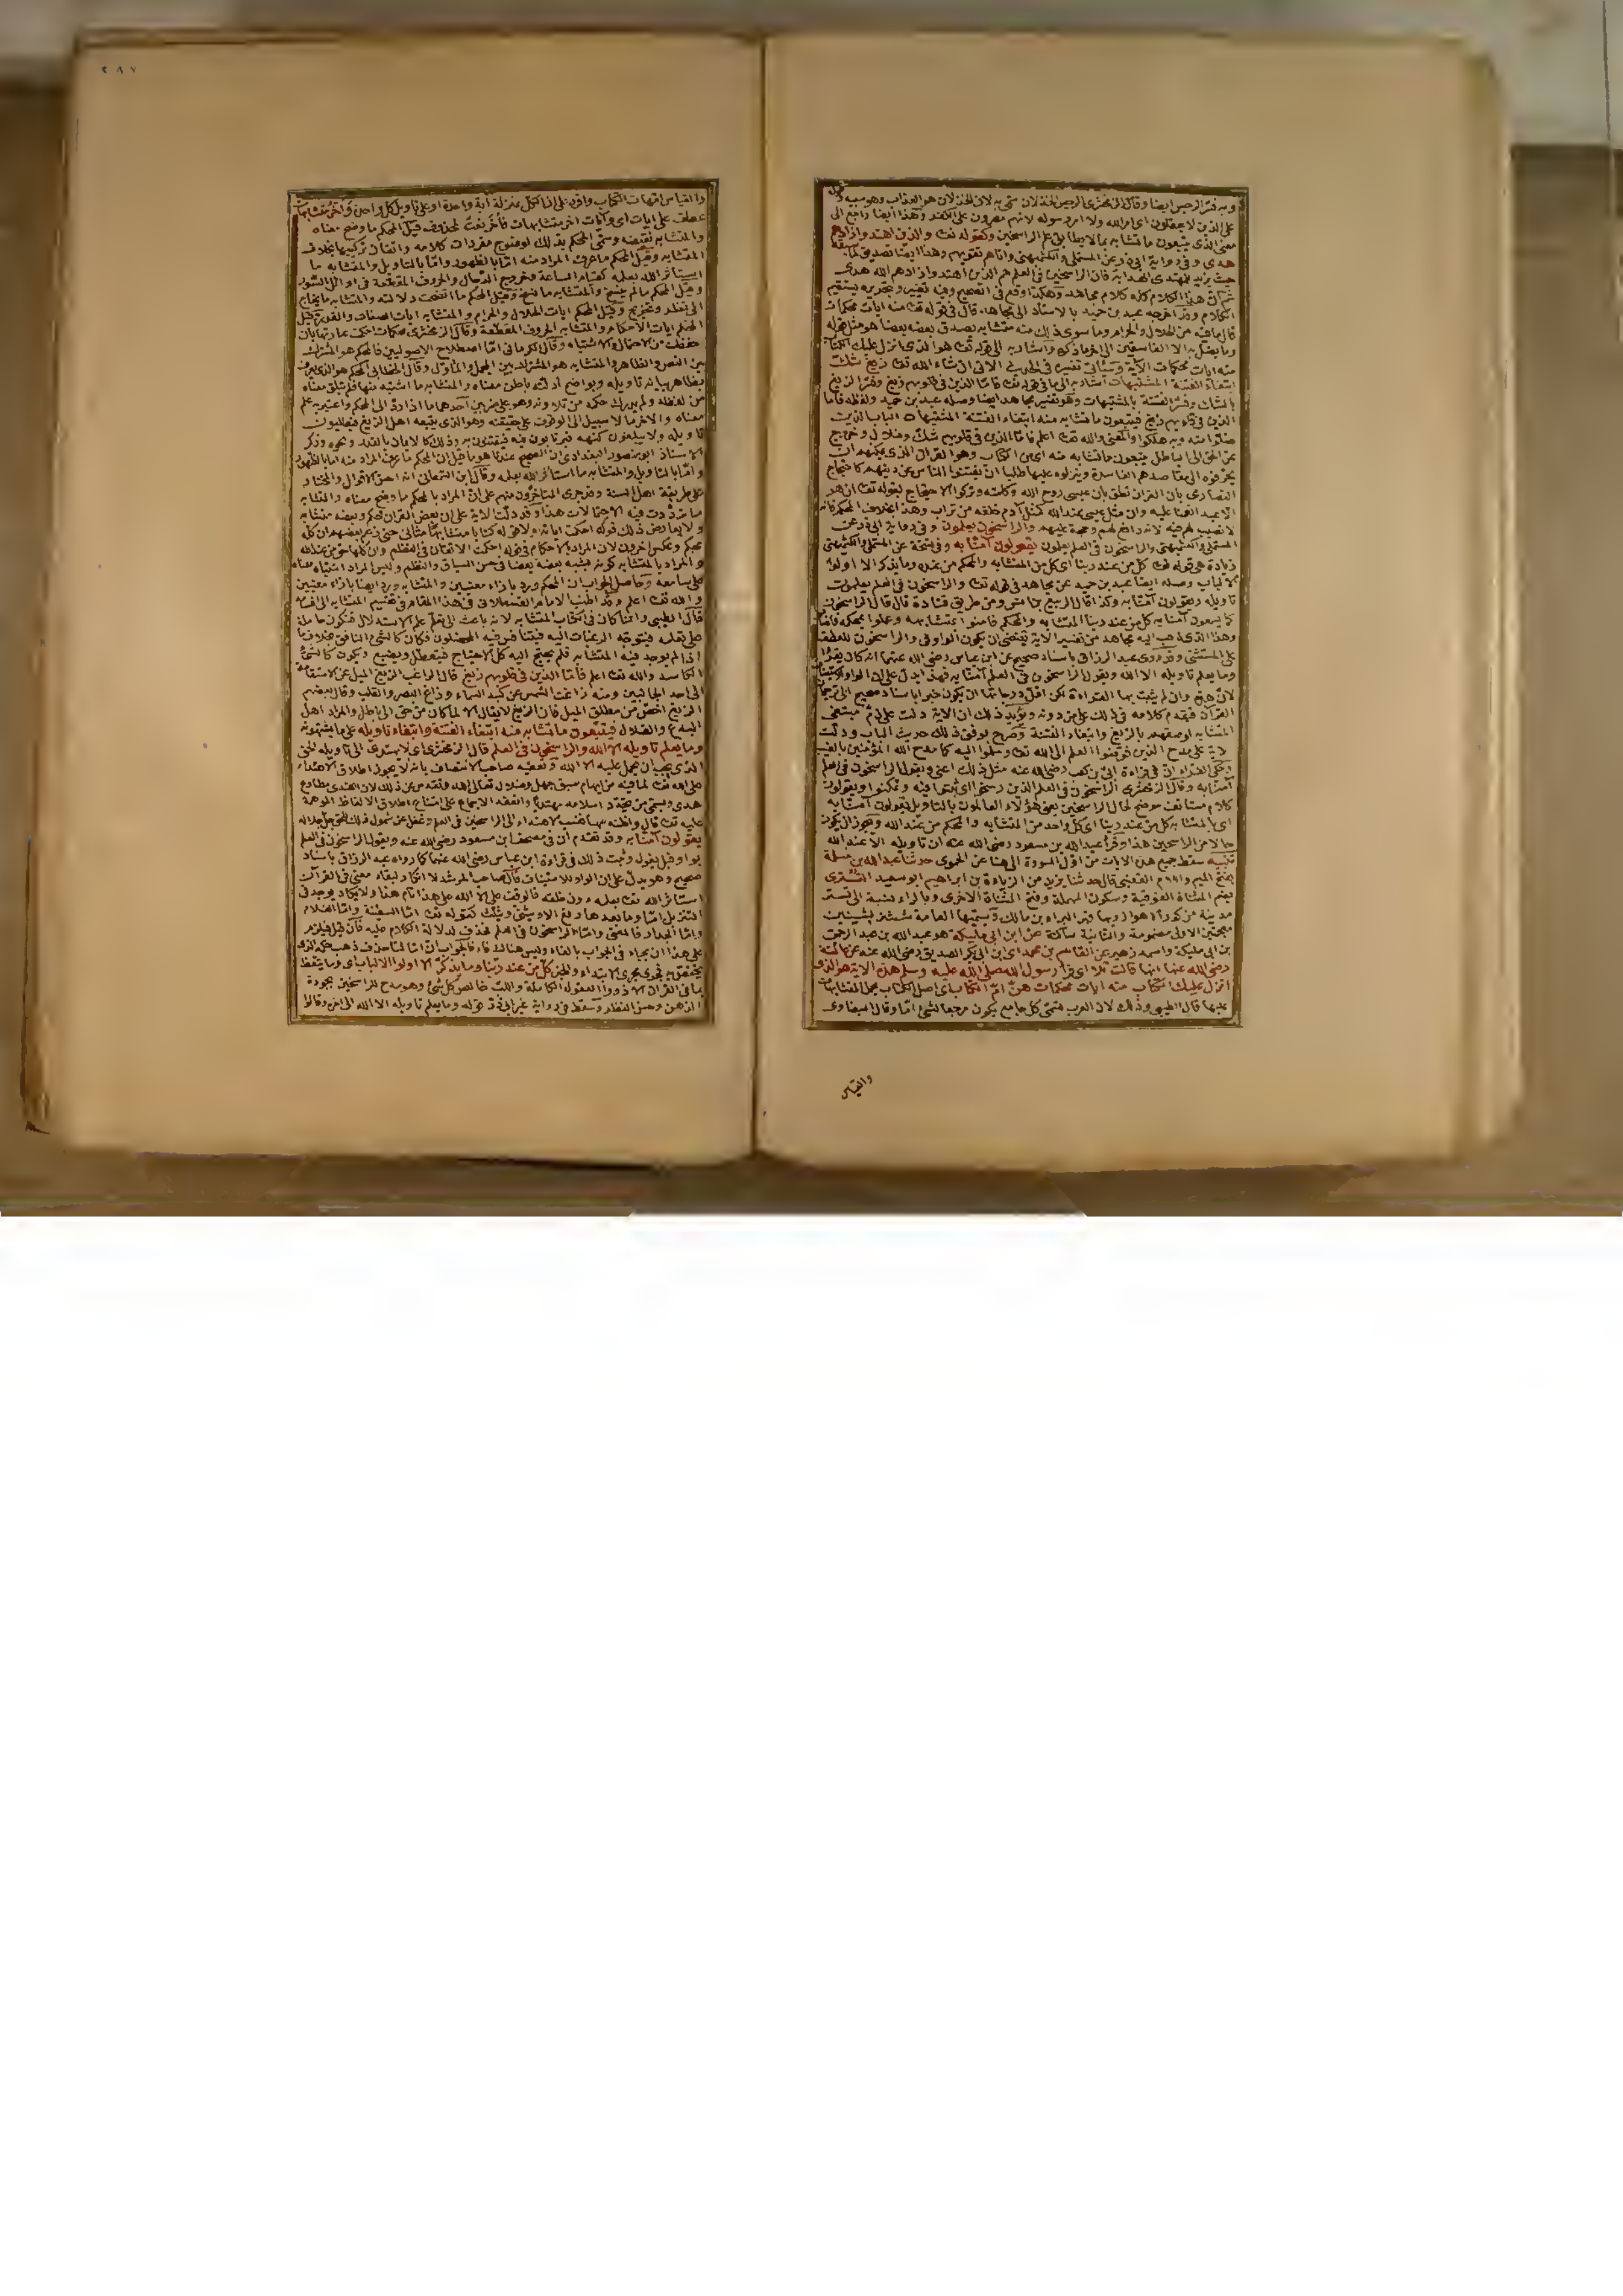 وبه فسّر الرجس ايضا وقال الزمخشرى الرجس الخذلان
على الذين لا يعقلون اى امر الله ولا امر رسوله لانهم مصرون على الكفر وهذا ايضا راجع الى
معنى الذى يتبعون ما تشابه بما لا يطابق علم الراسخين وكقوله تعـ والذين اهتدوا زادهم
هدى وفى رواية ابى ذر عن المستملى والكشميهنى واتاهم تقويهم وهذا ايضا تصديق لما
ثم ان هذا الكلام كله كلام مجاهد
الكلام وقد اخرجه عبد بن حميد بالاسناد الى مجاهد قال فى قوله تعـ منه ايات محكمات
قال ما فيه من الحلال والحرام وما سوى ذلك منه متشابه يصدق بعضه بعضا هو مثل قوله
وما يضل به الا الفاسقين
ابتغاء الفتنة المشتبهات
الذين فى قلوبهم زيغ فيتبعون ما تشابه منه ابتغاء الفتنة
النصارى بان القران نطق بان عيسى روح الله وكلمته وتركوا الاحتجاج بقوله تعـ ان هو
الا عبد انعمنا عليه وان مثل عيسى عند الله كمثل آدم خلقه من تراب وهذا بخلاف المحكم فانه
لا نصيب لهم فيه لانه دافع لهم وحجة عليهم والراسخون يعلمون وفى رواية ابى ذر عن
المستملى والكشميهنى والراسخون فى العلم يعلمون يقولون آمنا به وفى نسخة عن المستملى والكشميهنى
زيادة هى قوله تعـ كل من عند ربنا اى كل من المتشابه والمحكم من عنده وما يذكر الا اولوا
الالباب وصله ايضا عبد بن حميد عن مجاهد فى قوله تعـ والراسخون فى العلم يعلمون
تاويله ويقولون آمنا به وكذا قال الربيع بن انس ومن طريق قتادة قال قال الراسخون
كما يسمعون آمنا به كل من عند ربنا المتشابه والمحكم فامنوا بمتشابهه وعملوا بمحكمه
وهذا الذى ذهب اليه مجاهد من تفسير الاية يقتضى ان يكون الواو فى والراسخون للعطف
على المستثنى وقد روى عبد الرزاق باسناد صحيح عن ابن عباس رضى الله عنهما انه كان يقرا
وما يعلم تاويله الا الله ويقول الراسخون فى العلم آمنا به فهذا يدل على ان الواو
القرآن فيقدم كلامه فى ذلك على من دونه ويؤيد ذلك ان الاية دلت على ذم متبعى
المتشابه لوصفهم بالزيغ وابتغاء الفتنة وصرح بوفق ذلك حديث الباب ودلت
الاية على مدح الذين فوضوا العلم الى الله تعـ وسلموا اليه كما مدح الله المؤمنين بالغيب
وحكى الفراء ان فى قراءة ابى بن كعب رضى الله عنه مثل ذلك اعنى ويقول الراسخون فى العلم
آمنا به وقال الزمخشرى الراسخون فى العلم الذين رسخوا اى ثبتوا فيه وتمكنوا ويقولون
كلام مستانف موضح لحال الراسخين يعنى هؤلاء العالمون بالتاويل يقولون آمنا به
اى بالمتشابه كل من عند ربنا اى كل واحد من المتشابه والمحكم من عند الله ويجوز ان يكون
حالا من الراسخين هذا وقرأ عبد الله بن مسعود رضى الله عنه ان تاويله الا عند الله
تنبيه سقط جميع هذه الايات من اول السورة الى هنا عن الحموى حدثنا عبد الله بن مسلمة
بفتح الميم واللام القعنبى قال حدثنا يزيد من الزيادة بن ابراهيم ابو سعيد التسترى
بضم المثناة الفوقية وسكون المهملة وفتح المثناة الاخرى وبالراء نسبة الى تستر
مدينة من كور الاهواز وبها قبر البراء بن مالك وتسميها العامة ششتر بشينين
معجمتين الاولى مضمومة والثانية ساكنة عن ابن ابى مليكة هو عبد الله بن عبد الرحمن
بن ابى مليكة واسمه زهير عن القاسم بن محمد اى ابن ابى بكر الصديق رضى الله عنه عن عائشة
رضى الله عنها انها قالت تلا اى قرأ رسول الله صلى الله عليه وسلم هذه الاية هو الذى
انزل عليك الكتاب منه ايات محكمات هن ام الكتاب اى اصل الكتاب يحمل المتشابهات
عليها قال الطيبى وذلك لان العرب تسمى كل جامع يكون مرجعا لشئ امّا وقال البيضاوى
والقياس
٢٨٧
والقياس امهات الكتاب وافرد على ان الكل بمنزلة آية واحدة او على تاويل كل واحدة وأخر متشابهات
عطف على ايات اى وآيات اخر متشابهات فأخر نعت لمحذوف قيل المحكم ما وضح معناه
والمتشابه نقيضه وسمّى المحكم بذلك لوضوح مفردات كلامه واتقان تركيبها بخلاف
المتشابه وقيل المحكم ما عرف المراد منه امّا بالظهور وامّا بالتاويل والمتشابه ما
استاثر الله بعلمه كقيام الساعة وخروج الدجال والحروف المقطعة فى اوائل السور
وقيل المحكم ما لم ينسخ والمتشابه ما نسخ وقيل المحكم ما اتضحت دلالته والمتشابه ما يحتاج
الى نظر وتخريج وقيل المحكم ايات الحلال والحرام والمتشابه ايات الصفات والقدر وقيل
المحكم ايات الاحكام والمتشابه الحروف المقطعة وقال الزمخشرى محكمات احكمت عبارتها بان
حفظت من الاحتمال والاشتباه وقال الكرمانى امّا اصطلاح الاصوليين فالمحكم هو المشترك
بين النص والظاهر والمتشابه هو المشترك بين المجمل والمأوّل وقال الخطابى المحكم هو الذى يعرف
بظاهر بيانه تاويله وبواضح ادلته باطن معناه والمتشابه ما اشتبه منها فلم يتلق معناه
من لفظه ولم يدرك حكمه من تلاوته وهو على ضربين احدهما ما اذا رد الى المحكم واعتبر به علم
معناه والاخر ما لا سبيل الى الوقوف على حقيقته وهو الذى يتبعه اهل الزيغ فيطلبون
تاويله ولا يبلغون كنهه فيرتابون فيه فيفتنون به وذلك كالايمان بالقدر ونحوه وذكر
الاستاذ ابو منصور البغدادى ان الصحيح عندنا هو ما قيل ان المحكم ما عرف المراد منه اما بالظهور
وامّا بالتاويل والمتشابه ما استاثر الله بعلمه وقال ابن السمعانى انه احسن الاقوال والمختار
على طريقة اهل السنة وقد جرى المتاخرون منهم على ان المراد بالمحكم ما وضح معناه والمتشابه
ما ترددت فيه الاحتمالات هذا وقد دلت الاية على ان بعض القران محكم وبعضه متشابه
ولا يعارض ذلك قوله احكمت اياته ولا قوله كتابا متشابها مثانى حتى زعم بعضهم ان كله
محكم وعكس اخرون لان المراد بالاحكام فى قوله احكمت الاتقان فى النظم وان كلها حق من عند الله
والمراد بالمتشابه كونه يشبه بعضه بعضا فى حسن السياق والنظم وليس المراد اشتباه معناه
على سامعه وحاصل الجواب ان المحكم ورد بازاء معنيين والمتشابه ورد ايضا بازاء معنيين
والله تعـ اعلم وقد اطنب الامام القسطلانى فى هذا المقام
قال الطيبى وانما كان فى الكتاب المتشابه لانه باعث الى تعلم علم الاستدلال
اذا لم يوجد فيه المتشابه فلم يحتج اليه كل الاحتياج فيتعطل ويضيع ويكون كالشئ
الكاسد والله تعـ اعلم فأمّا الذين فى قلوبهم زيغ قال الراغب الزيغ الميل عن الاستقامة
الى احد الجانبين ومنه زاغت الشمس عن كبد السماء وزاغ البصر والقلب وقال بعضهم
الزيغ اخص من مطلق الميل فان الزيغ لا يقال الا لما كان من حق الى باطل والمراد اهل
البدع والضلال فيتبعون ما تشابه منه ابتغاء الفتنة وابتغاء تاويله على ما يشتهونه
وما يعلم تاويله الا الله والراسخون فى العلم قال الزمخشرى اى لا يهتدى الى تاويله الحق
الذى يجب ان يحمل عليه الا الله وتعقبه صاحب الانتصاف بانه لا يجوز اطلاق الاهتداء
على الله تعـ لما فيه من ايهام سبق جهل وضلال تعالى الله وتقدس عن ذلك لان اهتدى مطاوع
هدى ويسمى من تجدد اسلامه مهتديا وانعقد الاجماع على امتناع اطلاق الالفاظ الموهمة
عليه تعـ قال واظنه سها فنسب الاهتداء الى الراسخين فى العلم وغفل عن شمول ذلك للحق جل جلاله
يقولون آمنا به وقد تقدم ان فى مصحف ابن مسعود رضى الله عنه ويقول الراسخون فى العلم
بواو قبل يقول وثبت ذلك فى قراءة ابن عباس رضى الله عنهما كما رواه عبد الرزاق باسناد
صحيح وهو يدل على ان الواو للاستيناف قال صاحب المرشد لا انكار لبقاء معنى فى القرآن
استاثر الله تعـ بعلمه دون خلقه فالوقف على الا الله على هذا تام هذا ولا يكاد يوجد فى
التنزيل امّا وما بعدها رفع الا ويثنى ويثلث كقوله تعـ امّا السفينة وامّا الغلام
وامّا الجدار فالمعنى وامّا الراسخون فى العلم فحذف لدلالة الكلام عليه فان قيل فيلزم
على هذا ان يجاء فى الجواب بالفاء وليس هناك فاء فالجواب ان امّا لما حذف ذهب حكمه الذى
يختص به فجرى مجرى الابتداء والخبر كل من عند ربنا وما يذكر الا اولوا الالباب اى وما يتعظ
بما فى القران الا ذووا العقول الكاملة
الذهن وحسن النظر وسقط فى رواية غير ابى ذر قوله وما يعلم تاويله الا الله الى اخره وقالوا